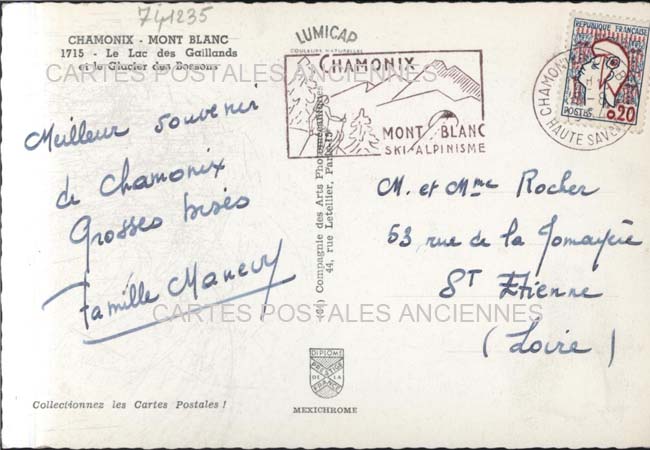 741235
CHAMONIX - MONT BLANC
1715 - Le Lac des Gaillands
et le Glacier des Bossons
CARTES POSTALES ANCIENNES
LUMICAP
COULEURS NATURELLES
CHAMONIX
MONT BLANC
SKI-ALPINISME
REPUBLIQUE FRANÇAISE
POSTES
0,20
CHAMONIX
HAUTE SAVOIE
Meilleur souvenir
de Chamonix
Grosses bises
Famille
Compagnie des Arts Photomécaniques
44, rue Letellier, Paris-15
M. et Mme Rocher
53 rue de la Jomayère
ST Etienne
(Loire)
CARTES POSTALES ANCIENNES
DIPLOME
PRESTIGE
DE LA
FRANCE
MEXICHROME
Collectionnez les Cartes Postales !